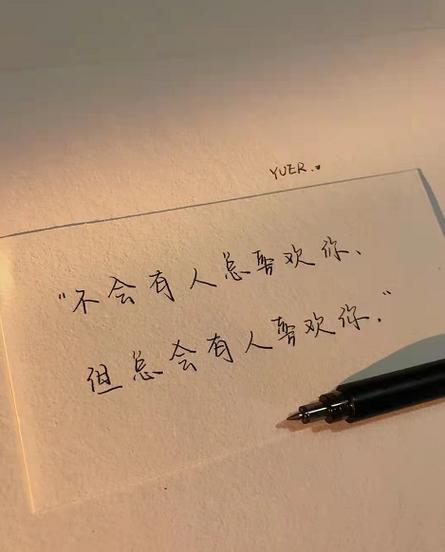 YUER.
“不会有人总喜欢你、
但总会有人喜欢你.”